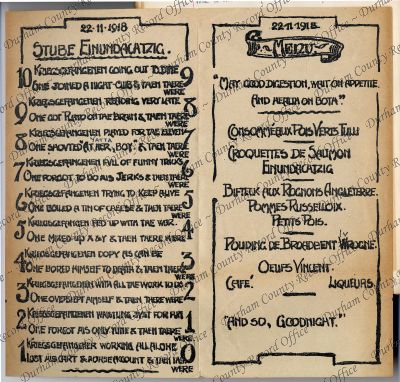 22-11-1918
STUBE EINUNDACATZIG.
10 KRIEGSGEFANGENEN GOING OUT TO DINE
ONE JOINED A NIGHT CLUB & THEN THERE WERE 9
9 KRIEGSGEFANGENEN READING VERY LATE
ONE GOT PLATO ON THE BRAIN & THEN THERE WERE 8
8 KRIEGSGEFANGENEN PLAYED FOR THE ELEVEN
ONE SHOUTED "AT HER, BOY," & THEN THERE WERE 7
7 KRIEGSGEFANGENEN FULL OF FUNNY TRICKS
ONE FORGOT TO DO HIS JERKS & THEN THERE WERE 6
6 KRIEGSGEFANGENEN TRYING TO KEEP ALIVE
ONE BOILED A TIN OF CHEESE & THEN THERE WERE 5
5 KRIEGSGEFANGENEN FED UP WITH THE WAR
ONE MIXED UP & THEN THERE WERE 4
4 KRIEGSGEFANGENEN DOPY AS CAN BE
ONE BORED HIMSELF TO DEATH & THEN THERE WERE 3
3 KRIEGSGEFANGENEN WITH ALL THE WORK TO DO
ONE OVERSLEPT HIMSELF & THEN THERE WERE 2
2 KRIEGSGEFANGENEN WHISTLING JUST FOR FUN
ONE FORGOT HIS ONLY TUNE & THEN THERE WERE 1
1 KRIEGSGEFANGENER WORKING ALL ALONE
LOST HIS CART & HORSE ACCOUNT & THEN THERE WERE 0
22-11-1918.
MENU
"MAY GOOD DIGESTION, WAIT ON APPETITE
AND HEALTH ON BOTH."
CONSOMMEAUX POIS VERTS TULLI
CROQUETTES DE SAUMON
EINUNDACATZIG
BIFTEUX AUX ROGNONS ANGLETERRE.
POMMES RUSSELLOIX.
PETITS POIS.
POUDING DE BROADBENT
OEUFS VINCENT.
CAFÉ. LIQUEURS.
"AND SO, GOODNIGHT."
Durham County Record Office